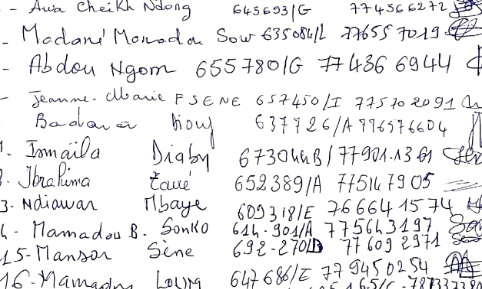 - Awa Cheikh Ndong 645693/G 774566272
- Madané Mamadou Sow 635084/L 77655 7019
- Abdou Ngom 655780/G 77436 6944
- Jeanne-Marie F SENE 657450/I 77570 2091
Badara Diouf 637726/A 776576604
Ismaïla Diaby 673044B/ 77901.13 61
Ibrahima 652389/A 775147905
3- Ndiawar Mbaye 609318/E 76664 1574
4- Mamadou B. Sonko 614-901/A 775643197
15- Mansor Sène 692-270/D 77609 2971
16- Mamadou Loum 647686/E 779450254